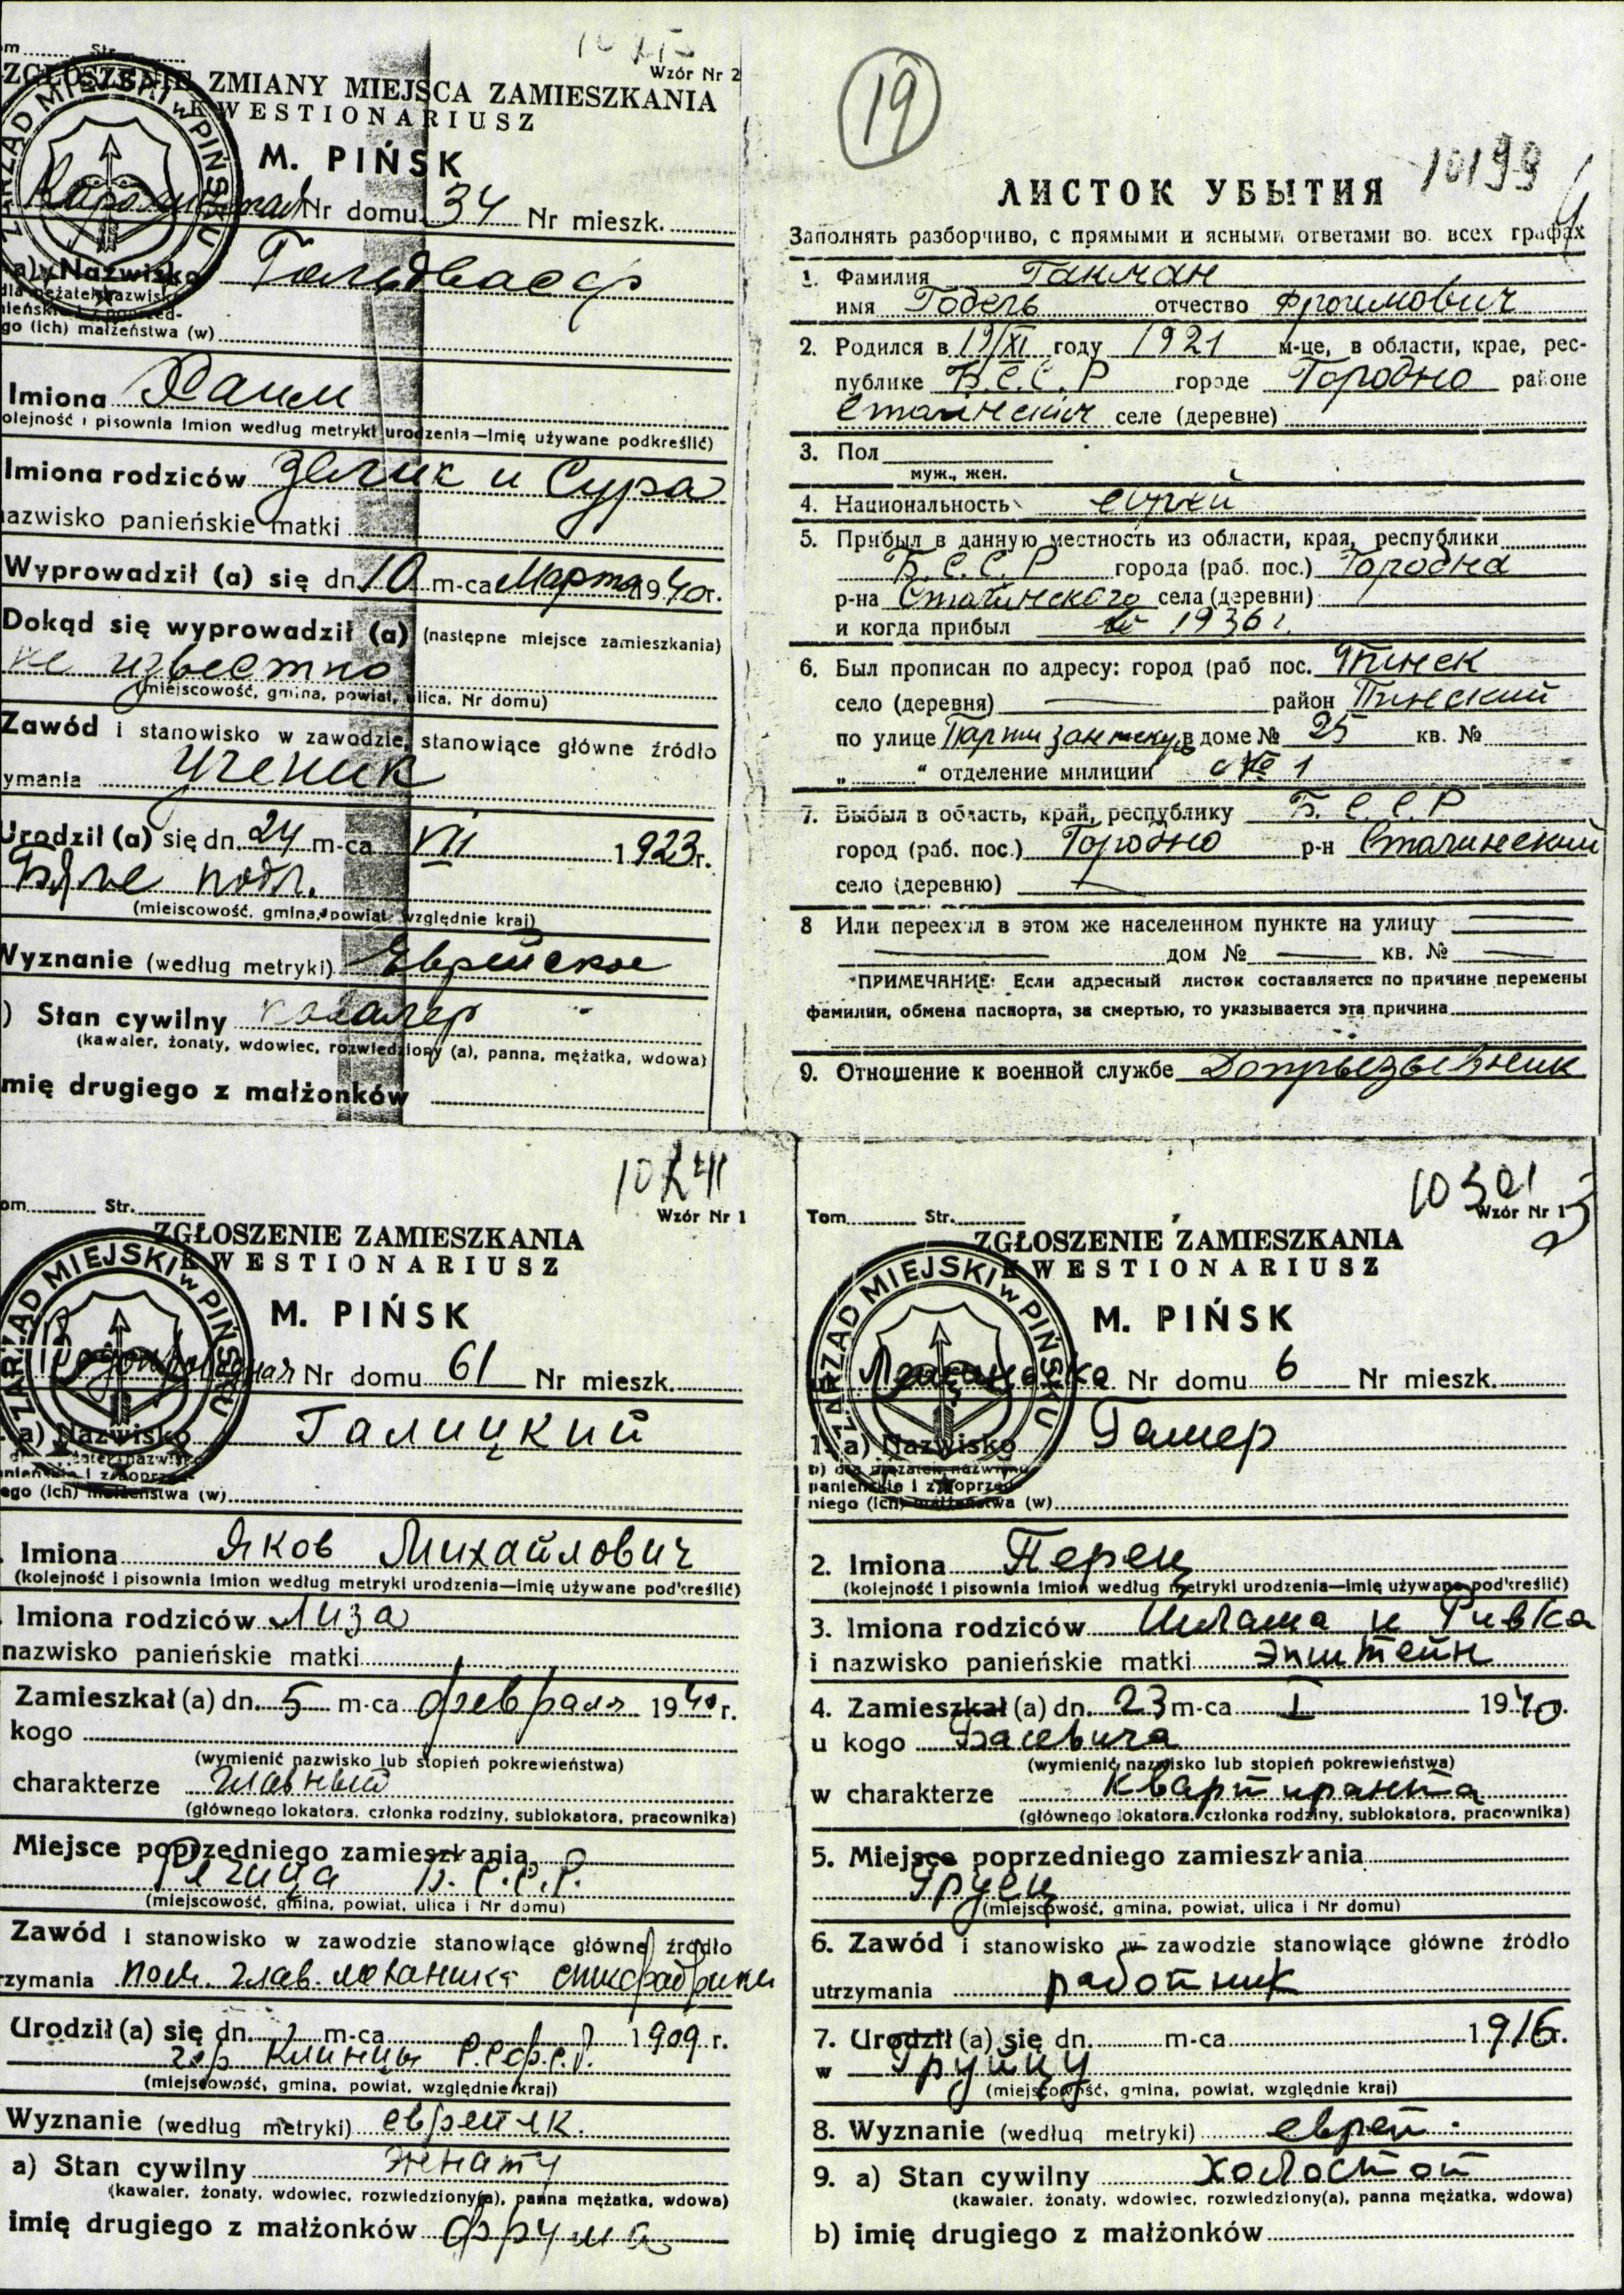 om Str.
Wzór Nr 2
ZGŁOSZENIE ZMIANY MIEJSCA ZAMIESZKANIA
KWESTIONARIUSZ
M. PIŃSK
ZARZĄD MIEJSKI w PIŃSKU
Nr domu 34 Nr mieszk.
a) Nazwisko Гольдвасер
go (ich) małżeństwa (w)
Imiona Хаим
olejność i pisownia imion według metryki urodzenia—imię używane podkreślić)
Imiona rodziców Зелик и Сура
nazwisko panieńskie matki
Wyprowadził (a) się dn. 10 m-ca Марта 1940 r.
Dokąd się wyprowadził (a) (następne miejsce zamieszkania)
не известно
(miejscowość, gmina, powiat, ulica, Nr domu)
Zawód i stanowisko w zawodzie, stanowiące główne źródło
ymania Ученик
Urodził (a) się dn. 24 m-ca VII 1923 r.
(miejscowość, gmina, powiat, względnie kraj)
Wyznanie (według metryki) Еврейское
) Stan cywilny кавалер
(kawaler, żonaty, wdowiec, rozwiedziony (a), panna, mężatka, wdowa)
mię drugiego z małżonków
19
10199
ЛИСТОК УБЫТИЯ
Заполнять разборчиво, с прямыми и ясными ответами во всех графах
1. Фамилия Гакман
имя Годель отчество Фроимович
2. Родился в 19/XI году 1921 м-це, в области, крае, рес-
публике Б.С.С.Р городе Городно районе
Сталинский селе (деревне)
3. Пол
муж., жен.
4. Национальность еврей
5. Прибыл в данную местность из области, края, республики
Б.С.С.Р города (раб. пос.) Городна
р-на Сталинского села (деревни)
и когда прибыл 1936 г.
6. Был прописан по адресу: город (раб пос. Пинск
село (деревня) район Пинский
по улице в доме № 25 кв. №
„ “ отделение милиции № 1
7. Выбыл в область, край, республику Б.С.С.Р
город (раб. пос.) Городно р-н Сталинский
село (деревню)
8 Или переехал в этом же населенном пункте на улицу
дом № кв. №
ПРИМЕЧАНИЕ: Если адресный листок составляется по причине перемены
фамилии, обмена паспорта, за смертью, то указывается эта причина
9. Отношение к военной службе Допрызывник
om Str.
Wzór Nr 1
ZGŁOSZENIE ZAMIESZKANIA
KWESTIONARIUSZ
M. PIŃSK
ZARZĄD MIEJSKI w PIŃSKU
Nr domu 61 Nr mieszk.
a) Nazwisko Галицкий
ego (ich) małżeństwa (w)
Imiona Яков Михайлович
(kolejność i pisownia imion według metryki urodzenia—imię używane podkreślić)
Imiona rodziców Лиза
nazwisko panieńskie matki
Zamieszkał (a) dn. 5 m-ca февраля 1940 r.
kogo
(wymienić nazwisko lub stopień pokrewieństwa)
charakterze главный
(głównego lokatora, członka rodziny, sublokatora, pracownika)
Miejsce poprzedniego zamieszkania
Б.С.С.Р.
(miejscowość, gmina, powiat, ulica i Nr domu)
Zawód i stanowisko w zawodzie stanowiące główne źródło
rzymania пом. глав. механика спичфабрики
Urodził (a) się dn. m-ca 1909 r.
гор Клинцы Р.С.Ф.С.Р.
(miejscowość, gmina, powiat, względnie kraj)
Wyznanie (według metryki) еврейск.
a) Stan cywilny
(kawaler, żonaty, wdowiec, rozwiedziony(a), panna mężatka, wdowa)
imię drugiego z małżonków Фрума
10301
Tom Str. Wzór Nr 1
ZGŁOSZENIE ZAMIESZKANIA
KWESTIONARIUSZ
M. PIŃSK
ZARZĄD MIEJSKI w PIŃSKU
Nr domu 6 Nr mieszk.
1. a) Nazwisko Гамер
b) dla mężatek nazwisko
panieńskie i z poprzed-
niego (ich) małżeństwa (w)
2. Imiona Перец
(kolejność i pisownia imion według metryki urodzenia—imię używane podkreślić)
3. Imiona rodziców и Ривка
i nazwisko panieńskie matki Эпштейн
4. Zamieszkał (a) dn. 23 m-ca I 1940.
u kogo Басевича
(wymienić nazwisko lub stopień pokrewieństwa)
w charakterze квартиранта
(głównego lokatora, członka rodziny, sublokatora, pracownika)
5. Miejsce poprzedniego zamieszkania
Груец
(miejscowość, gmina, powiat, ulica i Nr domu)
6. Zawód i stanowisko w zawodzie stanowiące główne źródło
utrzymania работник
7. Urodził (a) się dn. m-ca 1916 r.
w Груйцу
(miejscowość, gmina, powiat, względnie kraj)
8. Wyznanie (według metryki) еврей
9. a) Stan cywilny холостой
(kawaler, żonaty, wdowiec, rozwiedziony(a), panna, mężatka, wdowa)
b) imię drugiego z małżonków